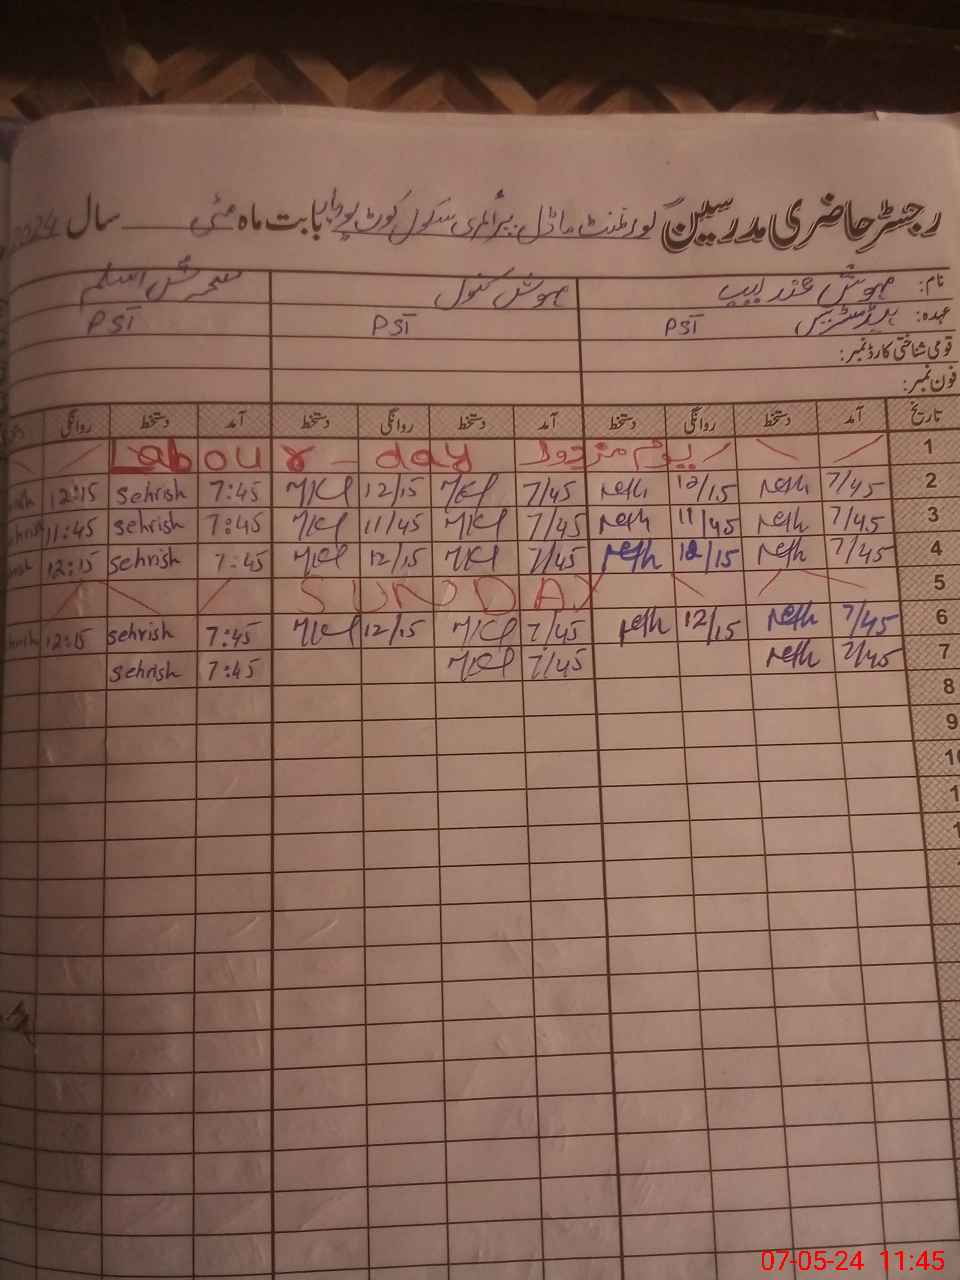 رجسٹر حاضری مدرسین گورنمنٹ ماڈل پرائمری سکول کوٹ بابت ماہ مئی سال 2024
نام: مہوش عندلیب مہوش کنول سحرش اسلم
عہدہ: ہیڈمسٹریس PST PST PST
قومی شناختی کارڈ نمبر:
فون نمبر:
تاریخ آمد دستخط روانگی دستخط آمد دستخط روانگی دستخط آمد دستخط روانگی
1 یوم مزدور Labour-day
2 7/45 12/15 7/45 12/15 7:45 Sehrish 12:15
3 7/45 11/45 7/45 11/45 7:45 Sehrish 11:45
4 7/45 12/15 7/45 12/15 7:45 Sehrish 12:15
5 SUNDAY
6 7/45 12/15 7/45 12/15 7:45 Sehrish 12:15
7 7/45 7/45 7:45 Sehrish
8
9
10
07-05-24 11:45